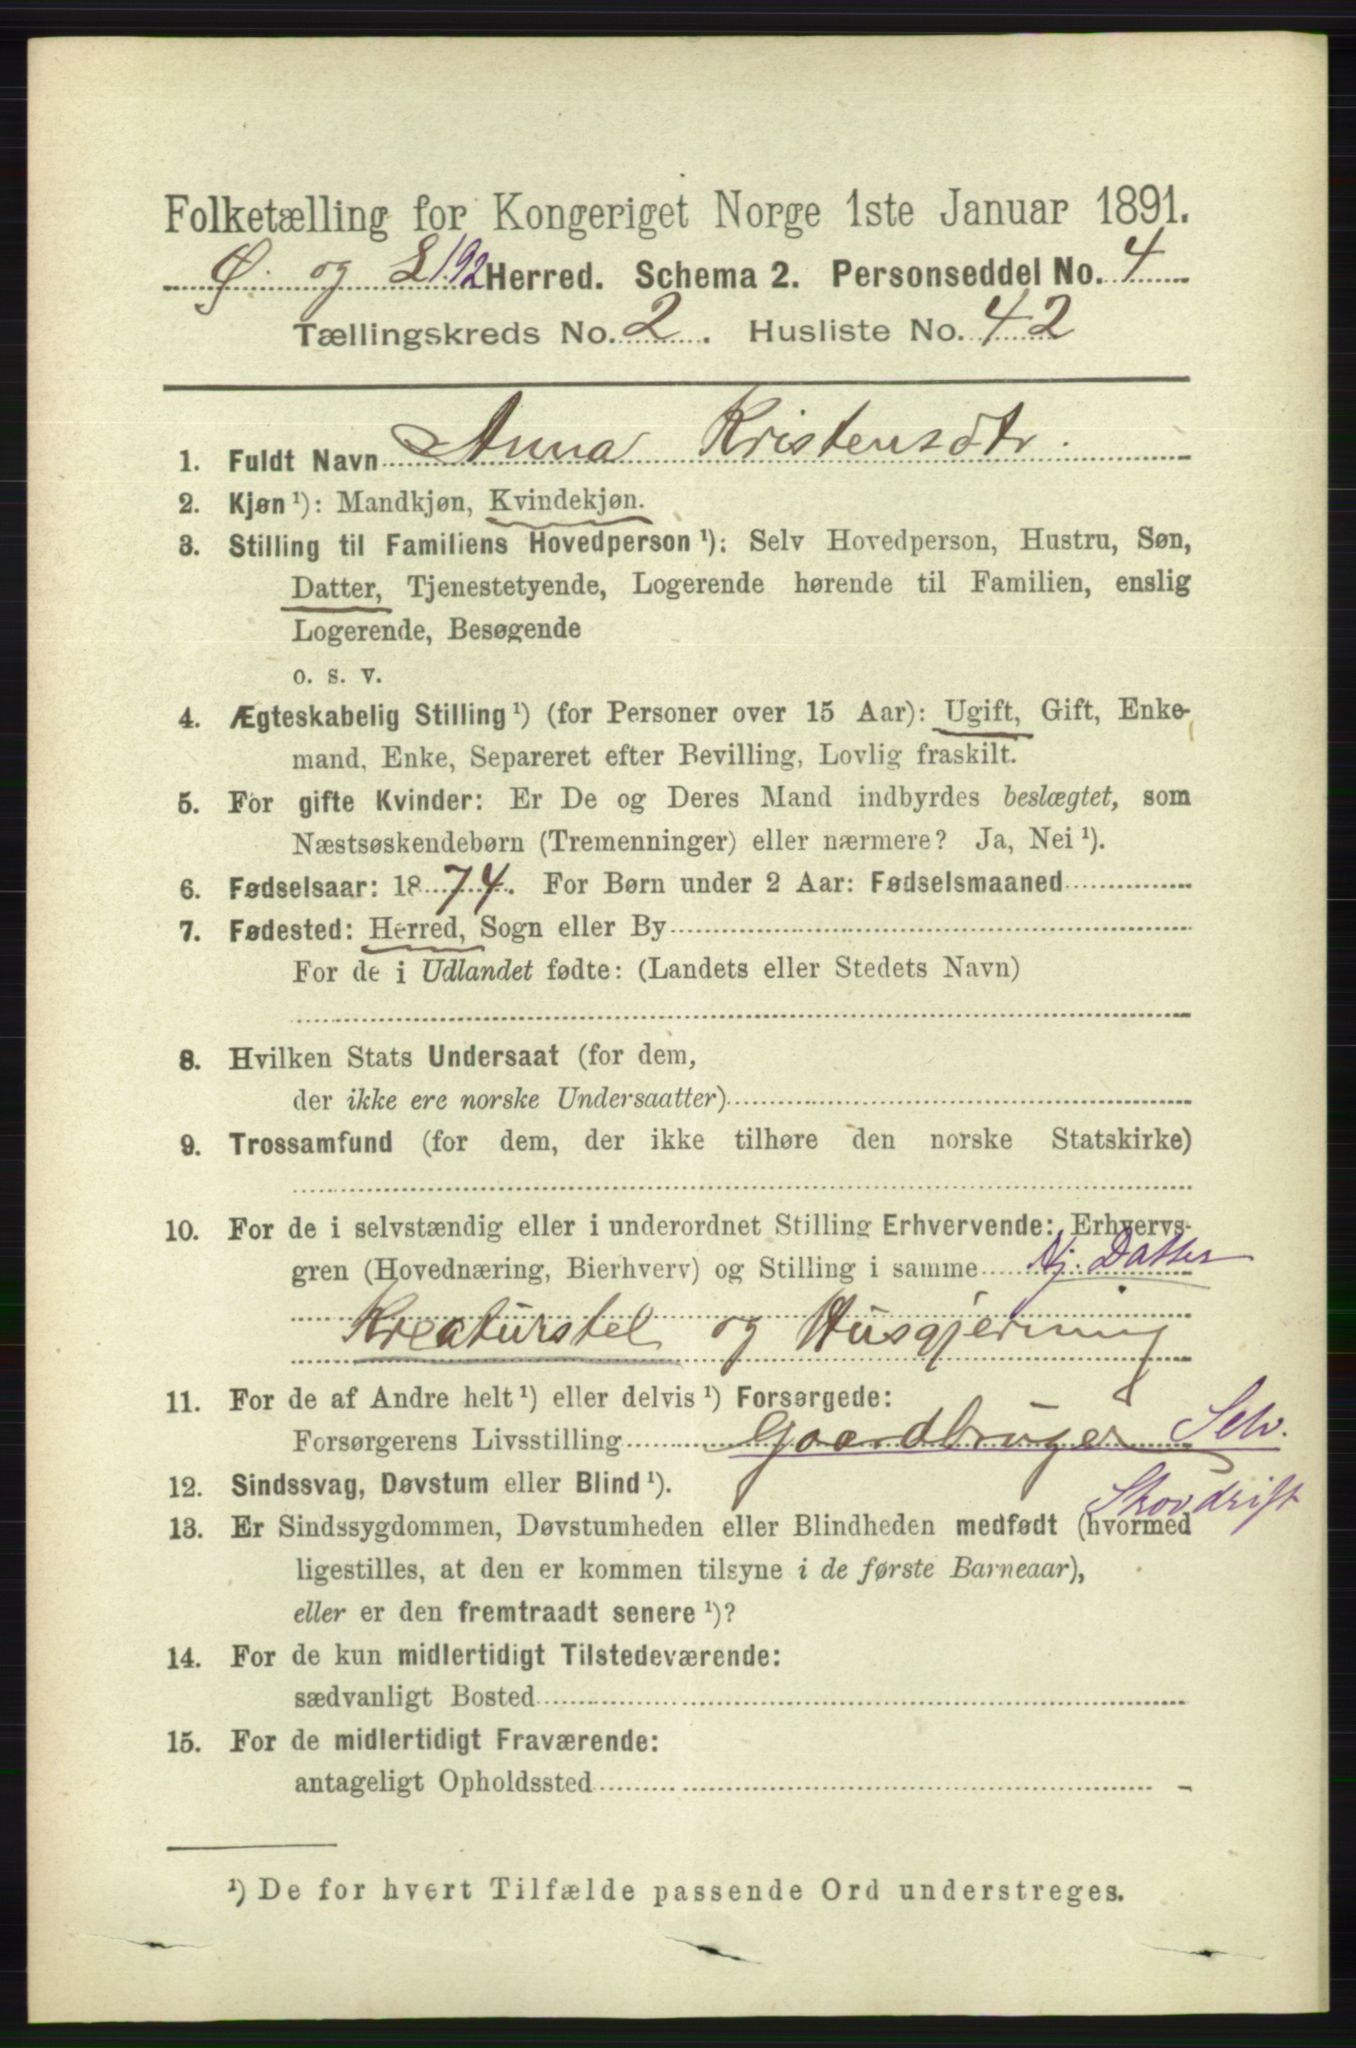 Folketælling for Kongeriget Norge 1ste Januar 1891.
Ø. og L 192 Herred. Schema 2. Personseddel No. 4
Tællingskreds No. 2. Husliste No. 42
1. Fuldt Navn Anna Kristensdtr.
2. Kjøn ¹): Mandkjøn, Kvindekjøn.
3. Stilling til Familiens Hovedperson ¹): Selv Hovedperson, Hustru, Søn,
Datter, Tjenestetyende, Logerende hørende til Familien, enslig
Logerende, Besøgende
o. s. v.
4. Ægteskabelig Stilling ¹) (for Personer over 15 Aar): Ugift, Gift, Enke-
mand, Enke, Separeret efter Bevilling, Lovlig fraskilt.
5. For gifte Kvinder: Er De og Deres Mand indbyrdes beslægtet, som
Næstsøskendebørn (Tremenninger) eller nærmere? Ja, Nei ¹).
6. Fødselsaar: 1874. For Børn under 2 Aar: Fødselsmaaned
7. Fødested: Herred, Sogn eller By
For de i Udlandet fødte: (Landets eller Stedets Navn)
8. Hvilken Stats Undersaat (for dem,
der ikke ere norske Undersaatter)
9. Trossamfund (for dem, der ikke tilhøre den norske Statskirke)
10. For de i selvstændig eller i underordnet Stilling Erhvervende: Erhvervs-
gren (Hovednæring, Bierhverv) og Stilling i samme Hj. Datter
Kreaturstel og Husgjerning
11. For de af Andre helt ¹) eller delvis ¹) Forsørgede:
Forsørgerens Livsstilling Gaardbruger Selv.
Skovdrift
12. Sindssvag, Døvstum eller Blind ¹).
13. Er Sindssygdommen, Døvstumheden eller Blindheden medfødt (hvormed
ligestilles, at den er kommen tilsyne i de første Barneaar),
eller er den fremtraadt senere ¹)?
14. For de kun midlertidigt Tilstedeværende:
sædvanligt Bosted
15. For de midlertidigt Fraværende:
antageligt Opholdssted
¹) De for hvert Tilfælde passende Ord understreges.